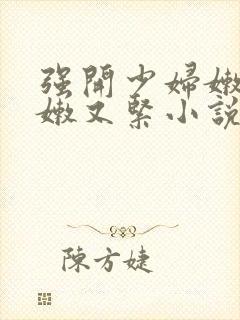 強開少婦嫩
嫩又緊小說
陳方婕